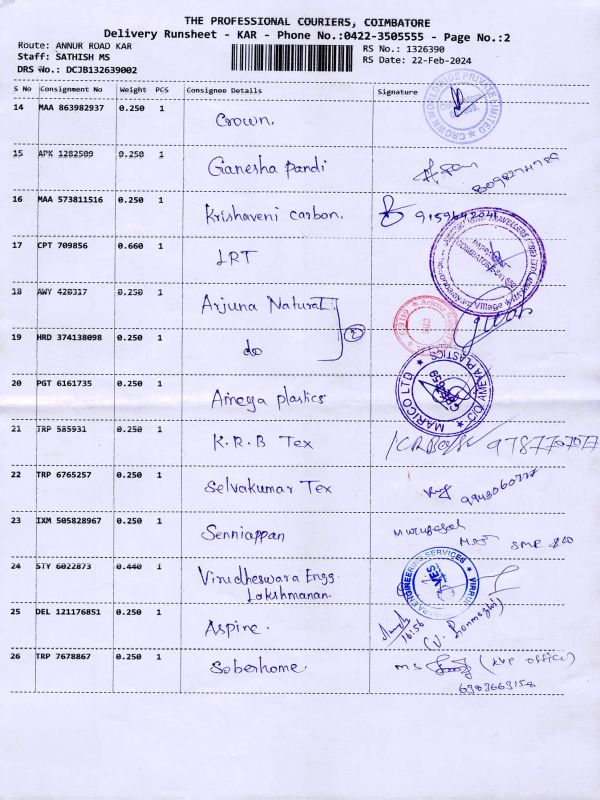 THE PROFESSIONAL COURIERS, COIMBATORE
Delivery Runsheet - KAR - Phone No.:0422-3505555 - Page No.:2
Route: ANNUR ROAD KAR
Staff: SATHISH MS
DRS No.: DCJB132639002
RS No.: 1326390
RS Date: 22-Feb-2024
S No Consignment No Weight PCS Consignee Details Signature
14 MAA 863982937 0.250 1 Crown.
15 APK 1282509 0.250 1 Ganesha Pandi
16 MAA 573811516 0.250 1 Krishaveni carbon.
17 CPT 709856 0.660 1 LRT
18 AWY 420317 0.250 1 Arjuna Natural
19 HRD 374138098 0.250 1 do
2
20 PGT 6161735 0.250 1 Ameya plastics
MARICO LTD C/O AMEYA PLASTICS
21 TRP 585931 0.250 1 K.R.B Tex
22 TRP 6765257 0.250 1 Selvakumar Tex
23 IXM 505828967 0.250 1 Senniappan
24 STY 6022873 0.440 1 Virudheswara Engg.
Lokshmanan.
ENGINEERING SERVICES
VES
25 DEL 121176851 0.250 1 Aspire.
16:56
26 TRP 7678867 0.250 1 Soberhome.
MS (KVP office)
6383663154